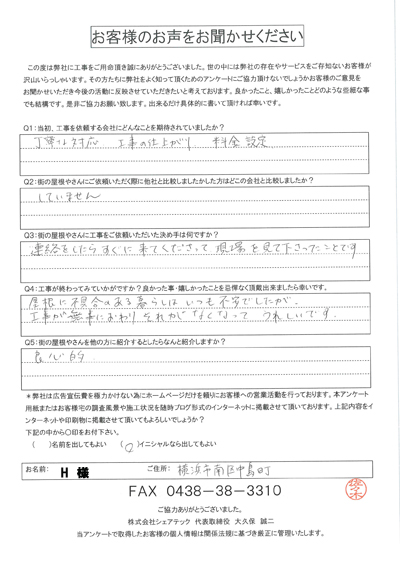 お客様のお声をお聞かせください
この度は弊社に工事をご用命頂き誠にありがとうございました。世の中には弊社の存在やサービスをご存知ないお客様が
沢山いらっしゃいます。その方たちに弊社をよく知って頂くためのアンケートにご協力頂けないでしょうかお客様のご意見を
お聞かせいただき今後の活動に反映させていただきたいと考えております。良かったこと、嬉しかったことどのような些細な事
でも結構です。是非ご協力お願い致します。出来るだけ具体的に書いて頂ければ幸いです。
Q1:当初、工事を依頼する会社にどんなことを期待されていましたか?
丁寧な対応 工事の仕上がり 料金設定
Q2:街の屋根やさんにご依頼いただく際に他社と比較しましたかした方はどこの会社と比較しましたか?
していません
Q3:街の屋根やさんに工事をご依頼いただいた決め手は何ですか?
連絡をしたらすぐに来てくださって 現場を見て下さったことです
Q4:工事が終わってみていかがですか?良かった事・嬉しかったことを忌憚なく頂戴出来ましたら幸いです。
屋根に不具合のある暮らしは いつも不安でしたが、
工事が無事におわり それがなくなって うれしいです。
Q5:街の屋根やさんを他の方に紹介するとしたらなんと紹介しますか?
良心的
*弊社は広告宣伝費を極力かけない為にホームページだけを頼りにお客様への営業活動を行っております。本アンケート
用紙またはお客様宅の調査風景や施工状況を随時ブログ形式のインターネットに掲載させて頂いております。上記内容をイ
ンターネットや印刷物に掲載させて頂いてもよろしいでしょうか?
下記の中から〇印をお付下さい。
( )名前を出してもよい (〇)イニシャルなら出してもよい
お名前: H 様 ご住所: 横浜市南区中島町
FAX 0438-38-3310
ご協力ありがとうございました。
株式会社シェアテック 代表取締役 大久保 誠二
当アンケートで取得したお客様の個人情報は関係法規に基づき厳正に管理いたします。